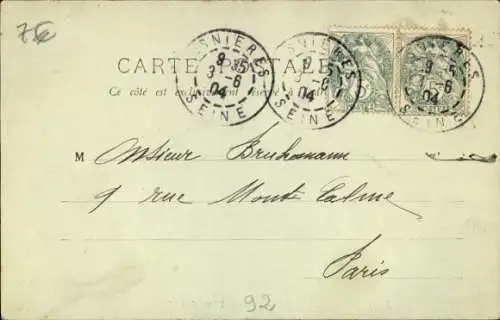 7€
CARTE POSTALE
Ce côté est exclusivement réservé à
ASNIERES
9 5
3 -6
04
SEINE
ASNIERES
9 5
3 -6
04
SEINE
ASNIERES
9 5
3 -6
04
SEINE
Monsieur Bruhsmann
9 rue Mont Calme
Paris
92